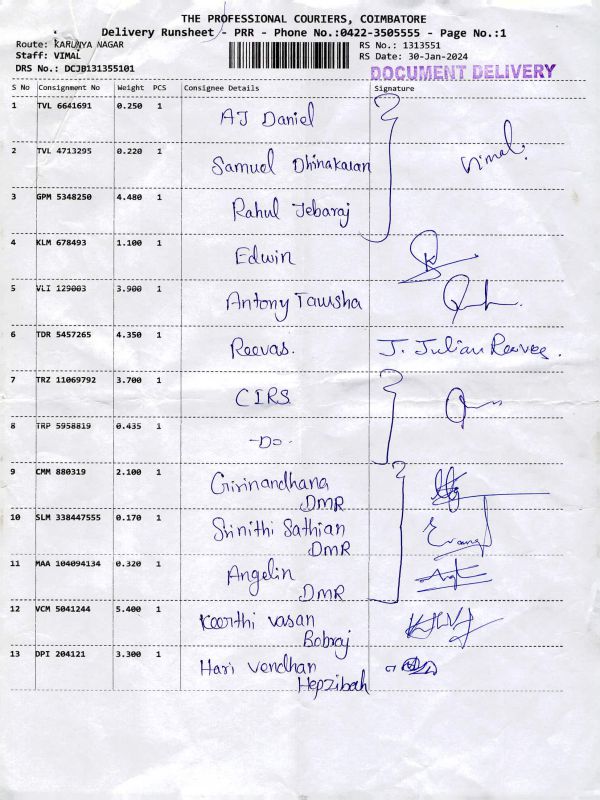 THE PROFESSIONAL COURIERS, COIMBATORE
Delivery Runsheet - PRR - Phone No.:0422-3505555 - Page No.:1
Route: KARUNYA NAGAR RS No.: 1313551
Staff: VIMAL RS Date: 30-Jan-2024
DRS No.: DCJB131355101 DOCUMENT DELIVERY
S No Consignment No Weight PCS Consignee Details Signature
1 TVL 6641691 0.250 1 AJ Daniel
Vimal.
2 TVL 4713295 0.220 1 Samuel Dhinakaran
3 GPM 5348250 4.480 1 Rahul Jebaraj
4 KLM 678493 1.100 1 Edwin
5 VLI 129003 3.900 1 Antony Tawsha
6 TDR 5457265 4.350 1 Reevas. J. Julian Reeves.
7 TRZ 11069792 3.700 1 CIRS
8 TRP 5958819 0.435 1 -Do-
9 CMM 880319 2.100 1 Girinandhana
DMR
10 SLM 338447555 0.170 1 Srinithi Sathian
DMR
11 MAA 104094134 0.320 1 Angelin
DMR
12 VCM 5041244 5.400 1 Keerthi vasan
Bobraj
13 DPI 204121 3.300 1 Hari vendhan
Hepzibah